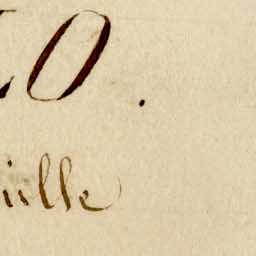 O.
ille